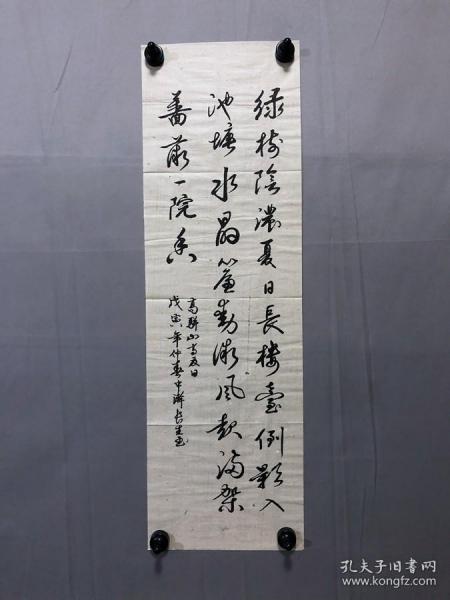 绿树陰濃夏日長樓臺倒影入
池塘水晶簾動微風起滿架
薔薇一院香
高駢山亭夏日
戊寅年仲春中澣長生書
孔夫子旧书网
www.kongfz.com